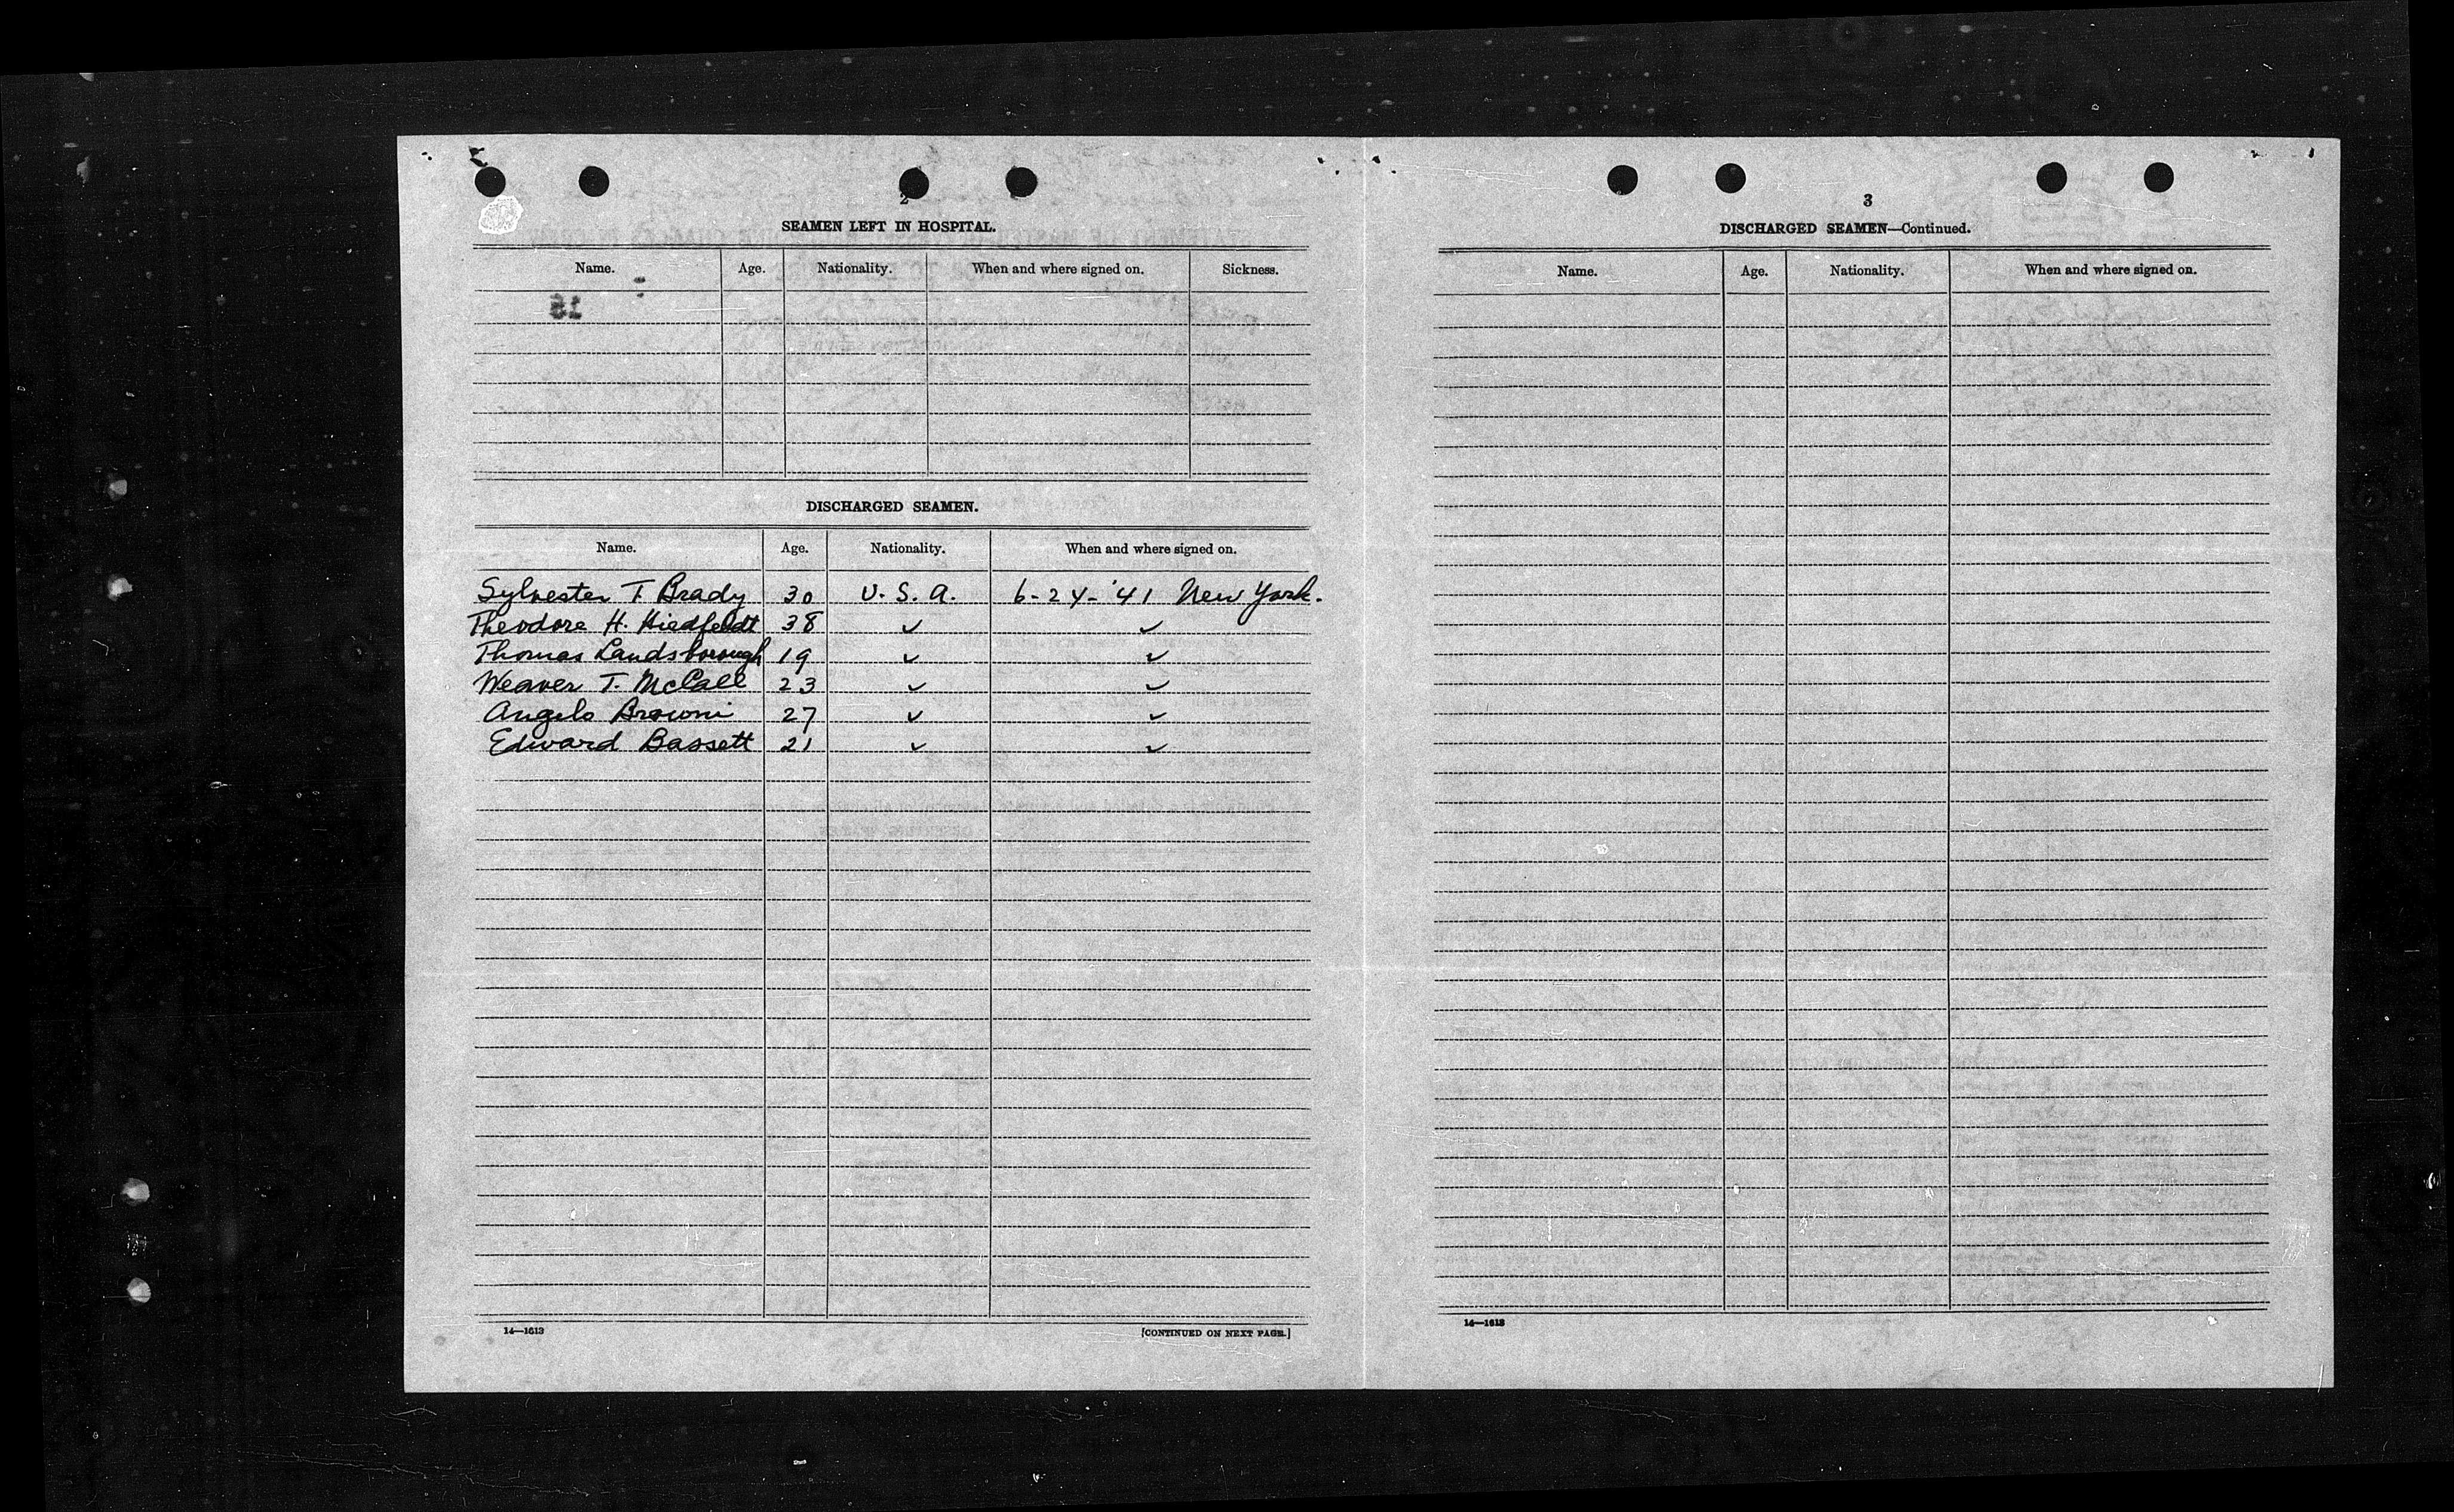 2
SEAMEN LEFT IN HOSPITAL.
Name. Age. Nationality. When and where signed on. Sickness.
DISCHARGED SEAMEN.
Name. Age. Nationality. When and where signed on.
Sylvester T. Brady 30 U. S. A. 6-24-'41 New York.
Theodore H. Hiedfeldt 38 ✓ ✓
Thomas Landsborough 19 ✓ ✓
Weaver T. McCall 23 ✓ ✓
Angelo Browni 27 ✓ ✓
Edward Bassett 21 ✓ ✓
14—1613
[CONTINUED ON NEXT PAGE.]
3
DISCHARGED SEAMEN—Continued.
Name. Age. Nationality. When and where signed on.
14—1613